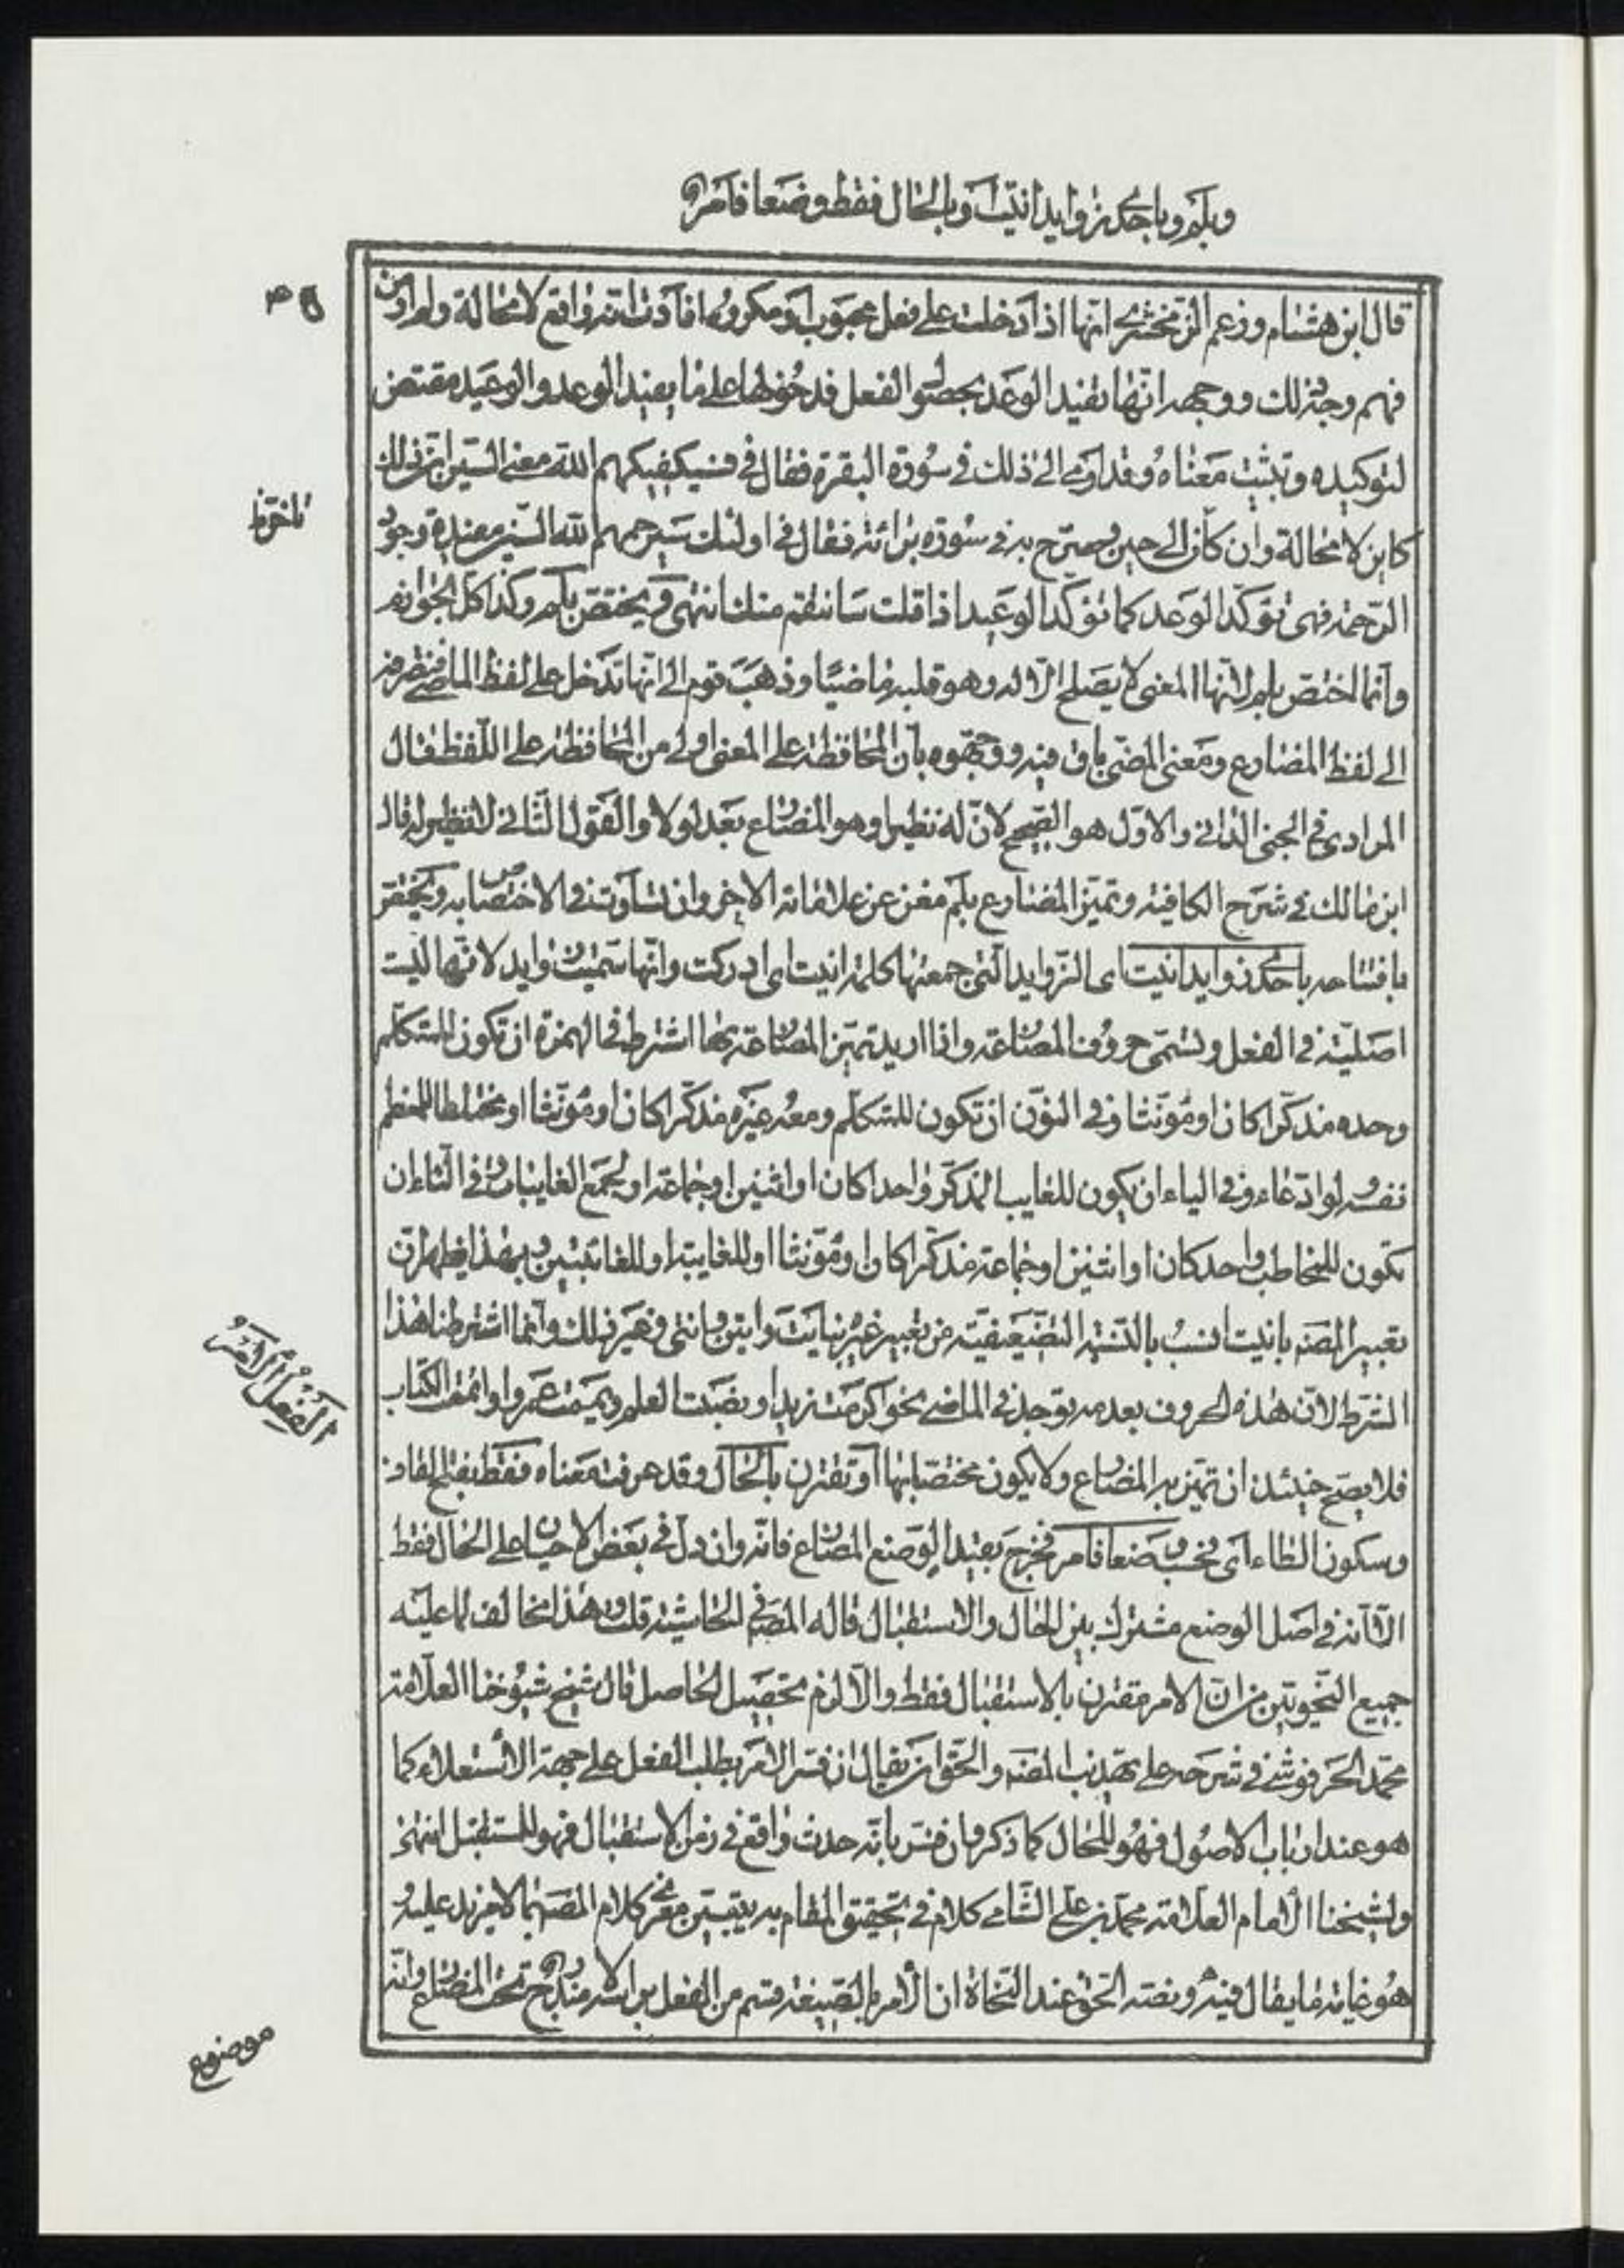 وبلم وباحدى زوايد انيت او بالحال فقط وضعا فامر
قال ابن هشام وزعم الزمخشرى انها اذا دخلت على فعل محبوب او مكروه افادت انه واقع لا محالة ولم ار من
فهم وجه ذلك ووجهه انها تفيد الوعد بحصول الفعل فدخولها على ما يفيد الوعد والوعيد مقتض
لتوكيده وتثبيت معناه وقد اومى الى ذلك فى سورة البقرة فقال فى فسيكفيكهم الله معنى السين ان ذلك
كاين لا محالة وان كان الى حين وصرح به فى سورة برائة فقال فى اولئك سيرحمهم الله السين مفيدة وجود
الرحمة فهى تؤكد الوعد كما تؤكد الوعيد اذا قلت سانتقم منك انتهى ويختص بلم وكذا كل الجوازم
وانما اختص بلم لانها المعنى لا يصلح الا له وهو قلبه ماضيا وذهب قوم الى انها تدخل على لفظ الماضى فتصرفه
الى لفظ المضارع ومعنى المضى باق فيه ووجهوه بان المحافظة على المعنى اولى من المحافظة على اللفظ قال
المرادى فى الجنى الدانى والاول هو الصحيح لان له نظيرا وهو المضارع بعد لو لا والقول الثانى لا نظير له قال
ابن مالك فى شرح الكافية وتميز المضارع بلم مغن عن علاماته الاخر وان تساوت فى الاختصاص به ويختص
بافتتاحه باحدى زوايد انيت اى الزوايد التى جمعتها كلمة انيت اى ادركت وانها سميت زوايد لانها ليست
اصلية فى الفعل وتسمى حروف المضارعة واذا اريد تميز المضارعة بها اشترط فى الهمزة ان تكون للمتكلم
وحده مذكرا كان او مؤنثا وفى النون ان تكون للمتكلم ومعه غيره مذكرا كان او مؤنثا او مختلطا او للمعظم
نفسه ولو ادعاء وفى الياء ان يكون للغايب المذكر واحدا كان او اثنين او جماعة او لجمع الغايبات وفى التاء ان
تكون للمخاطب واحد كان او اثنين او جماعة مذكرا كان او مؤنثا او للغايبة او للغائبتين وبهذا يظهر ان
تعبير المصنف بانيت انسب بالتسمية التضعيفية من تعبير غيره بنايت واتين وانتى وغير ذلك وانما اشترطنا هذا
الشرط لان هذه الحروف بعدمه توجد فى الماضى نحو اكرمت زيدا و نصبت العلم ويممت عمروا واتممت الكتاب
فلا يصح حينئذ ان تميز به المضارع ولا يكون مختصا بها او تقترن بالحال وقد عرفت معناه فقط بفتح القاف
وسكون الطاء اى فحسب وضعا فامر فخرج بقيد الوضع المضارع فانه وان دل فى بعض الاحيان على الحال فقط
الا انه فى اصل الوضع مشترك بين الحال والاستقبال قاله المصنف فى الحاشية قلت وهذا مخالف لما عليه
جميع النحويين من ان الامر مقترن بالاستقبال فقط والا لزم تحصيل الحاصل قال شيخ شيوخنا العلامة
محمد الحرفوشى فى شرحه على تهذيب المصنف والحق ان يقال ان فسر الامر بطلب الفعل على جهة الاستعلاء كما
هو عند ارباب الاصول فهو للحال كما ذكر وان فسر بانه حدث واقع فى زمن الاستقبال فهو للمستقبل انتهى
ولشيخنا الامام العلامة محمد بن على الشامى كلام فى تحقيق المقام به يتبين مغزى كلام المصنف بما لا مزيد عليه و
هو غاية ما يقال فيه ونصه الحق عند النحاة ان الامر بالصيغة قسم من الفعل براسه لا مندرج تحت المضارع وانه
ناختو
الفعل الامر
موضوع